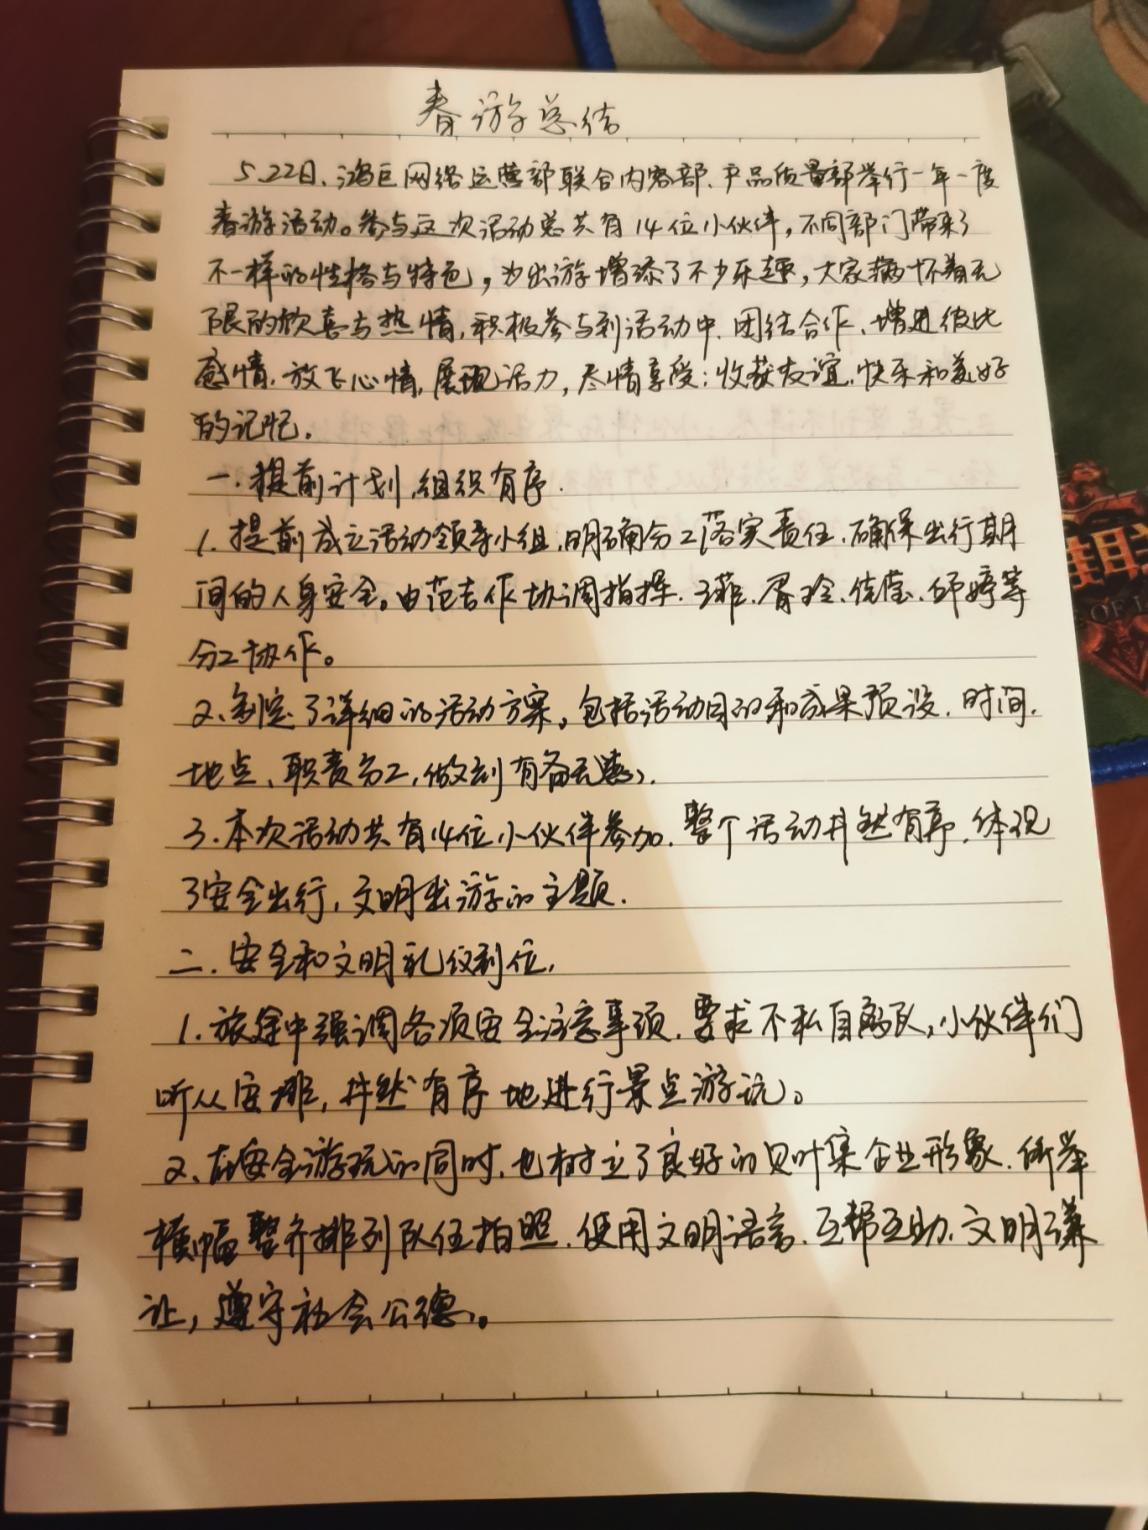 春游总结
5.22日、鸿巨网络运营部联合内容部、产品质量部举行一年一度
春游活动。参与这次活动总共有14位小伙伴，不同部门带来了
不一样的性格与特色，为出游增添了不少乐趣，大家满怀着无
限的欣喜与热情，积极参与到活动中，团结合作、增进彼比
感情，放飞心情，展现活力，尽情享受；收获友谊、快乐和美好
的记忆.
一.提前计划，组织有序.
1.提前成立活动领导小组，明确分工落实责任，确保出行期
间的人身安全。由范吉作协调指挥、婷等
分工协作。
2、制定了详细的活动方案，包括活动目的和成果预设、时间、
地点、职责分工，做到有备无患、
3.本次活动共有14位小伙伴参加、整个活动井然有序，体现
了安全出行，文明出游的主题.
二.安全和文明礼仪到位，
1.旅途中强调各项安全注意事项，要求不私自离队，小伙伴们
听从安排，井然有序地进行景点游玩。
2、在安全游玩的同时，也树立了良好的贝叶集企业形象，所举
横幅整齐排列队伍拍照，使用文明语言、互帮互助、文明谦
让，遵守社会公德。